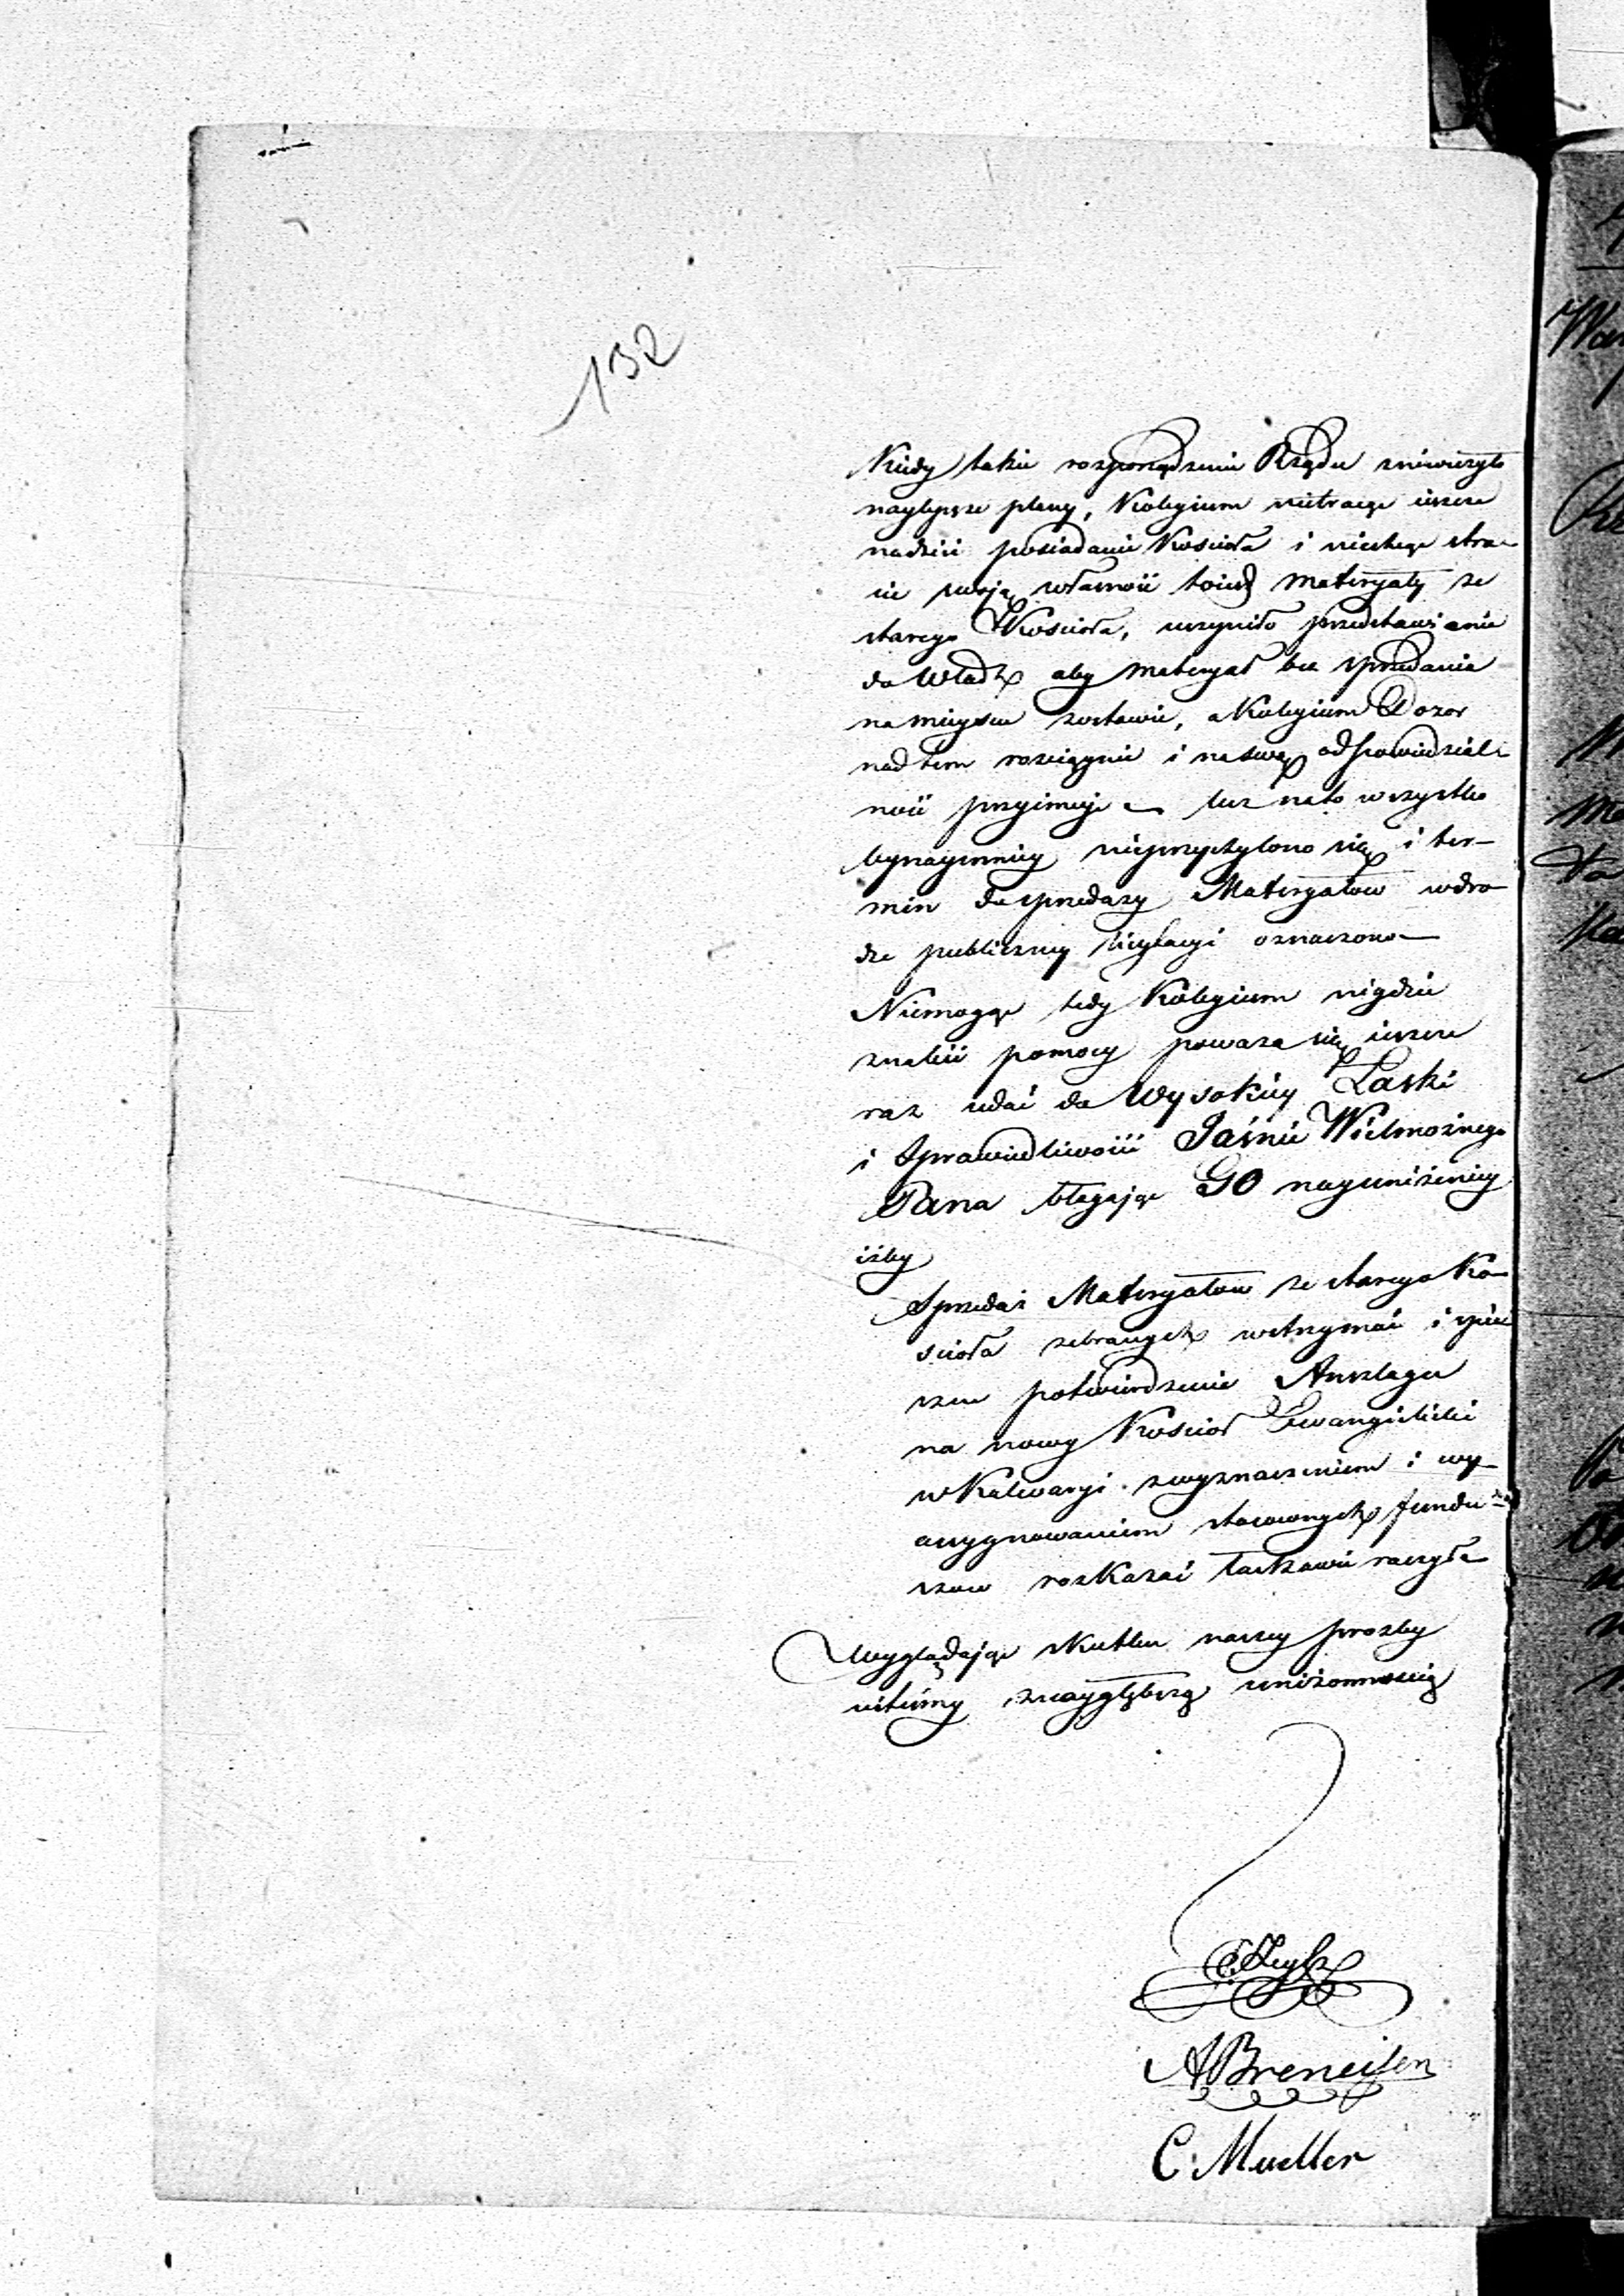 132
Kiedy takie rozporządzenie Rządu zniweczyło
naylepsze plany, Kolegium nietracąc ieszcze
nadziei posiadanie Kościoła i niechcąc stra-
cić swoję własność toiest Materyały ze
starego Kościoła, uczyniło przedstawienie
do Władz aby Materyał bez sprzedania
na mieyscu zostawić, a Kolegium Dozor
nad tem rozciągnie i na swą odpowiedzial-
ność przyimuje - lecz na to wszystko
bynaymniey nieprzychylono się i ter-
min do sprzedazy Materyałow w dro-
dze publiczney licytacyi oznaczono -
Niemogąc tedy Kolegium nigdzie
znaleść pomocy poważa się ieszcze
raz udać do Wysokiey Łaski
i Sprawiedliwości Jaśnie Wielmożnego
Pana błagając GO nayuniżeniey
iżby
Sprzedaż Materyałow ze starego Ko-
ścioła zebranych wstrzymać i spie-
szne potwierdzenie Anszlagu
na nowy Kościoł Ewangielicki
w Kalwaryi z wyznaczeniem i wy-
asygnowaniem stosownych fundu-
szow rozkazać łaskawie raczył -
Wyglądając skutku naszey prozby
iesteśmy z naygłębszą uniżonnością
ABreneisen
C. Mueller